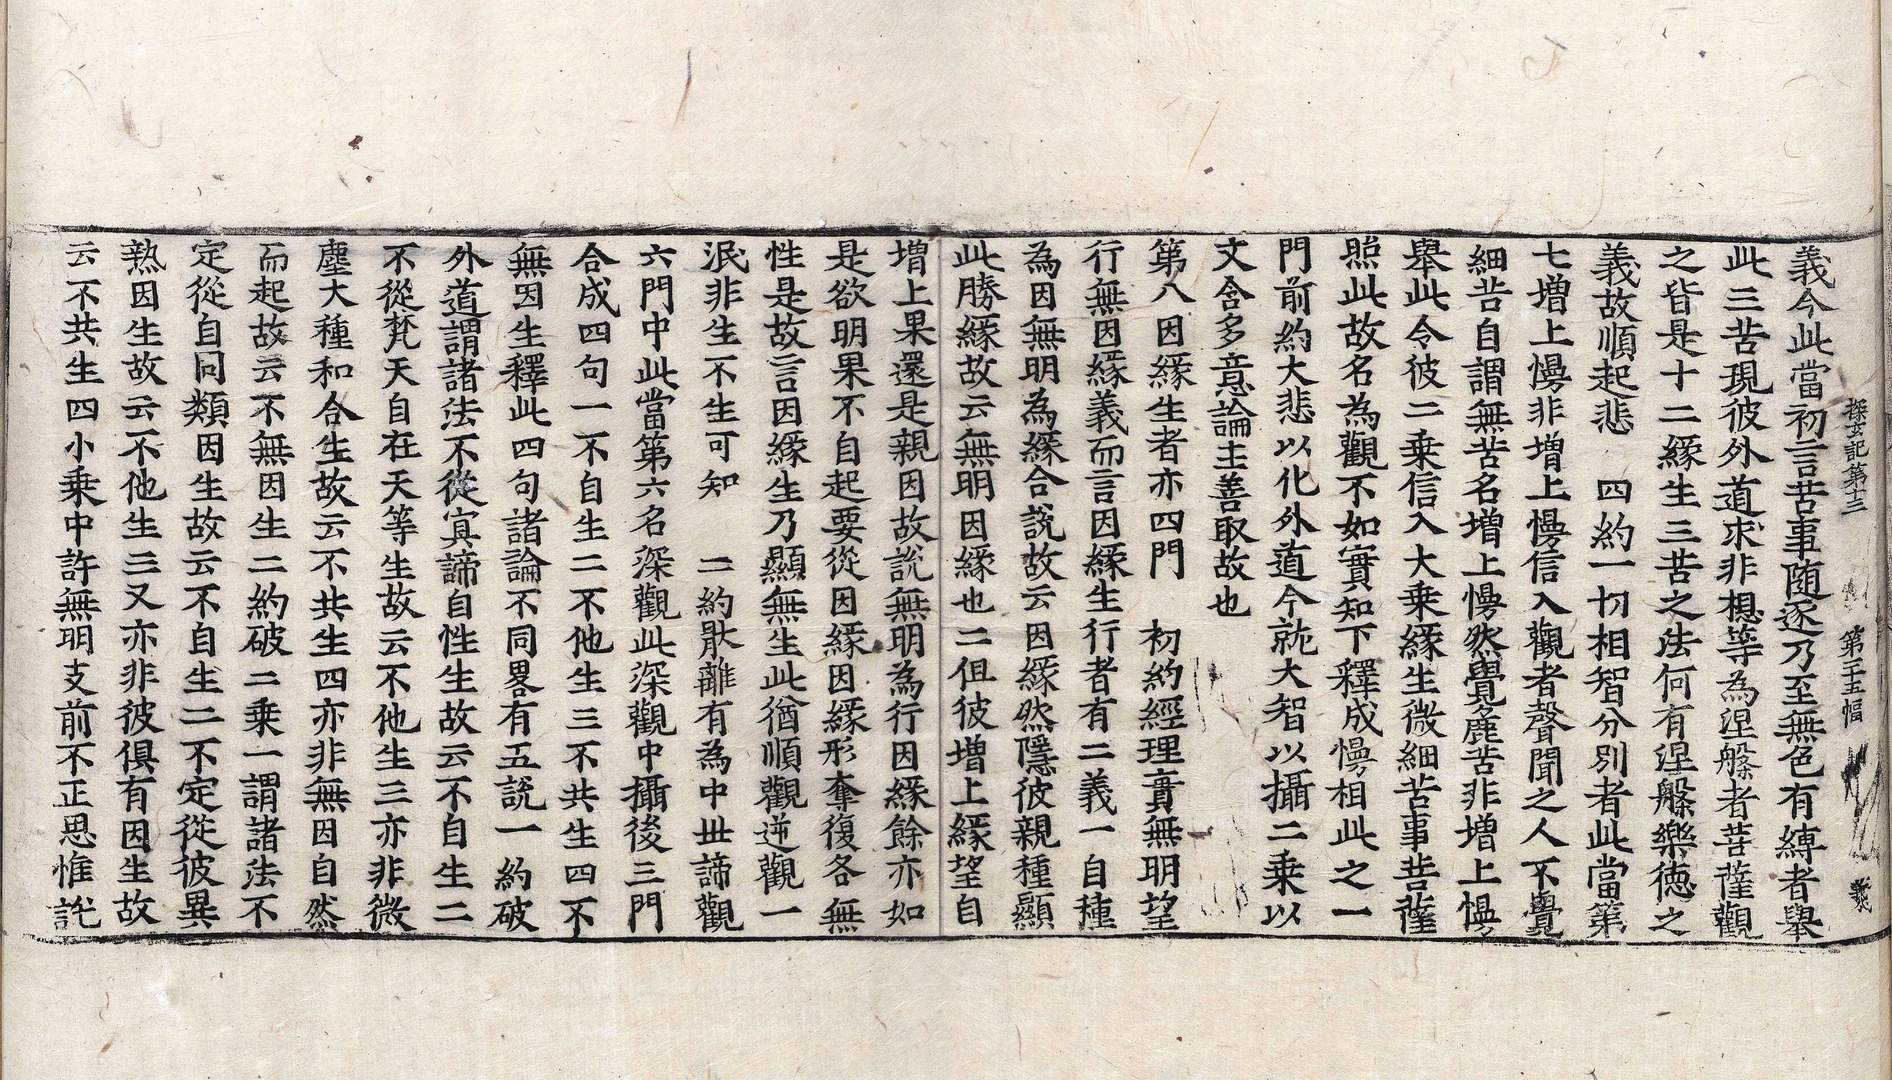 探玄記第十三 第二十五幅 義
義今此當初言苦事随逐乃至無色有縛者舉
此三苦現彼外道求非想等為涅槃者菩薩觀
之皆是十二緣生三苦之法何有涅槃樂德之
義故順起悲 四約一切相智分別者此當第
七增上慢非增上慢信入觀者聲聞之人不覺
細苦自謂無苦名增上慢然覺麁苦非增上慢
舉此令彼二乘信入大乘緣生微細苦事菩薩
照此故名為觀不如實知下釋成慢相此之一
門前約大悲以化外道今就大智以攝二乘以
文含多意論主善取故也
第八因緣生者亦四門 初約經理實無明望
行無因緣義而言因緣生行者有二義一自種
為因無明為緣合說故云因緣然隱彼親種顯
此勝緣故云無明因緣也二但彼增上緣望自
增上果還是親因故說無明為行因緣餘亦如
是欲明果不自起要從因緣因緣形奪復各無
性是故言因緣生乃顯無生此猶順觀逆觀一
泯非生不生可知 二約厭離有為中世諦觀
六門中此當第六名深觀此深觀中攝後三門
合成四句一不自生二不他生三不共生四不
無因生釋此四句諸論不同畧有五說一約破
外道謂諸法不從冥諦自性生故云不自生二
不從梵天自在天等生故云不他生三亦非微
塵大種和合生故云不共生四亦非無因自然
而起故云不無因生二約破二乘一謂諸法不
定從自同類因生故云不自生二不定從彼異
熟因生故云不他生三又亦非彼俱有因生故
云不共生四小乘中許無明支前不正思惟說